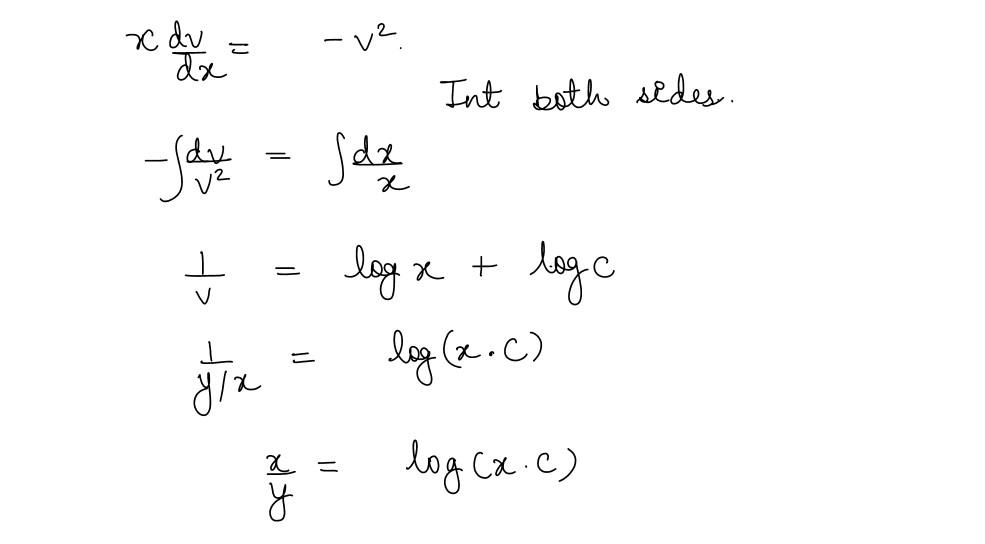 x dv/dx = - v².
Int both sides.
-∫ dv/v² = ∫ dx/x
1/v = log x + log c
1/y/x = log(x · C)
x/y = log(x · C)